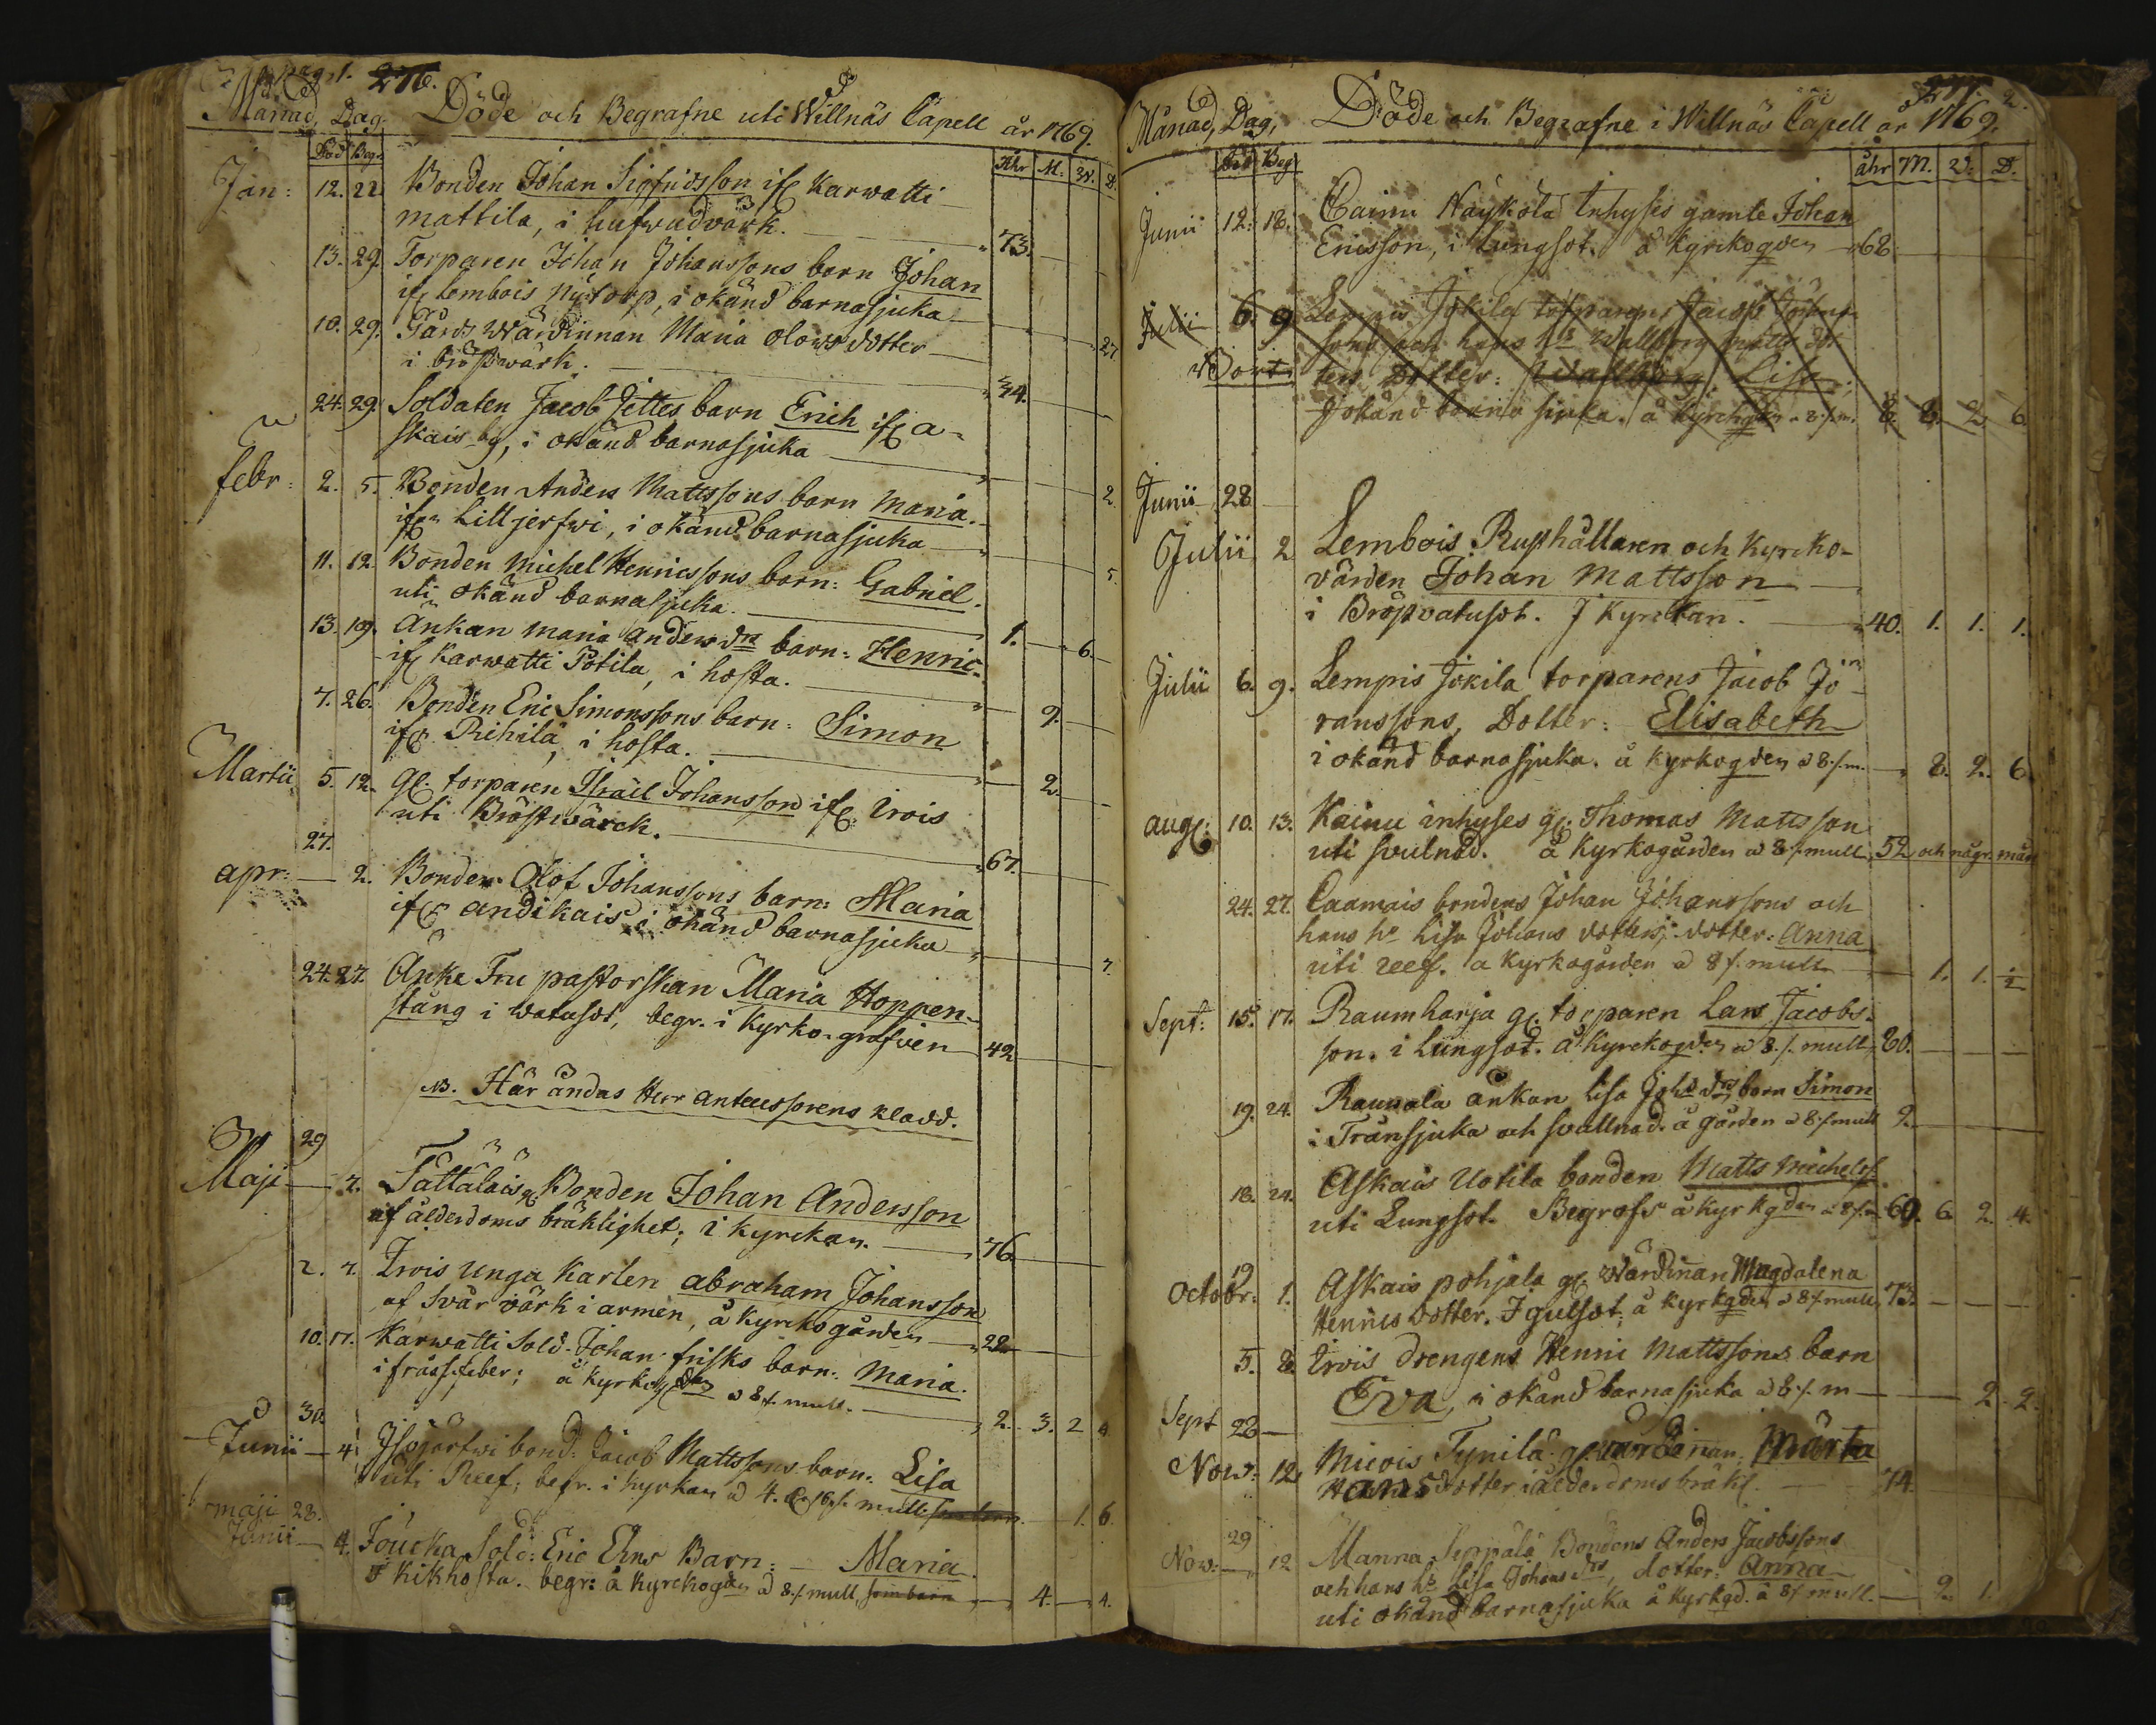 pag. 1. 276.
Månad, Dag. Döde och Begrafne uti Willnäs Capell år 1769.
Död Begr. Åhr M. W. D.
Jan: 12. 22. Bonden Johan Sigfridsson if: Karwatti
mattila, i hufvudvärk. 73.
13. 29. Torparen Johan Johanssons barn Johan
if: Lembois Nytorp, i okänd barnasjuka 27
10. 29. Wärdinnan Maria Olows dotter
i bröstwärk. 34.
24. 29. Soldaten Jacob Jettes barn Erich if: a-
skais by, i okänd barnasjuka 2
febr: 2. 5. Bonden Anders Mattssons barn Maria.
if: Lilljerfwi, i okänd barnasjuka 5.
11. 12. Bonden Michel Henricssons barn: Gabriel.
uti okänd barnasjuka. 1. 6.
13. 19. Änkan maria anders dra barn: Henric.
if: Karwatti Potila, i hosta. 9.
7. 26. Bonden Eric Simonssons barn: Simon
if: Rihilä, i hosta. 2.
Martii 5. 12. gl. torparen Israel Johansson if: Irois
uti Bröstwärck. 67.
27.
apr: — 2. Bonden Olof Johanssons barn: Maria
if: andikais i okänd barnasjuka 7.
24. 27. Änke Fru pastorskan Maria Hoppen-
stång i watusot, begr. i Kyrko-grafven 42
NB. Här ändas Herr antecessorens kladd.
29
Maji — 7. Tattalais gl. Bonden Johan Andersson
af ålderdoms bräklighet; i Kyrckan. 76.
2. 7. Irois unga Karlen abraham Johansson
af svår värk i armen, å Kyrckogården 22
10. 17. Karwatti Sold. Johan frisks barn: Maria.
i frässfeber; å Kyrkog:den a 8 f. mull. 2. 3. 2 4
30.
Junii — 4. Isojärfwi bond: Jacob Mattssons barn: Lisa
uti Reef; begr. i Kyrkan a 4. 16 f. mull. 1. 6
maji 28.
Junii — 4. Joucka Sold: Eric Ehns Barn: Maria.
i Kikhosta. begr: å Kyrckogden a 8 f. mull, som barn 4. 4.
277. 2.
Månad, Dag, Döde och Begrafne i Willnäs Capell år 1769.
Död Beg. åhr M. W. D.
Junii 12. 18. Cainu Näykölä Inhyses gamle Johan
Ericsson, i Lungsot. å Kyrckogden 68
Julii 6. 9. Lempis Jokila torparens Jacob Jörans-
sons och hans h: Wallborg matts dot-
Bort ters Dotter: Wallborg. Lisa,
I okänd barna sjuka. å Kyrckogden a 8 f. m. 8. 2. 6.
Junii 28
Julii 2 Lembois Rusthållaren och Kyrcko-
vården Johan Mattsson
i Bröstvatusot. I Kyrckan. 40. 1. 1. 1.
Julii 6. 9. Lempis Jokila torparens Jacob Jö-
ranssons, Dotter: Elisabeth
i okänd barnasjuka. å Kyrkogden a 8 f. m. 8. 2. 6.
aug: 10. 13. Kainu inhyses gl. Thomas Mattsson
uti svulnad. å Kyrkogården a 8 f. mull, 52 och någr. mån
24. 27. Caamais bondens Johan Johanssons och
hans h: Lisa Johans dotters dotter: Anna
uti reef. å Kyrkogården a 8 f. mull 1. 1. ½
Sept: 15. 17. Raumharja gl. torparen Lars Jacobs-
son. i Lungsot. å Kyrckogden a 8 f. mull, 80.
19. 24. Raunala änkan Lisa Joh: drs barn Simon
i Trånsjuka och svullnad. å gården a 8 f. mull 9.
18. 24. Askais Uotila bonden Matts Michelss.
uti Lungsot. Begrofs å Kyrkgden a 8 f. m. 60. 6 2. 4.
19
Octobr: 1. Askais pohjala gl. Wärdinnan Magdalena
Henrics dotter. I gulsot. å Kyrkgden a 8 f. mull, 73.
5. 8. Irois drengens Henric Mattssons barn
Eva, i okänd barnasjuka a 8 f. m 2. 2.
Sept 28 —
Now: 12. Micois Tynilä gl. wärdinnan: Märta
Hans dotter i ålderdoms bräkl. 74.
29
Now: — 12 Manna Seppälä Bondens Anders Jacobssons
och hans h: Lisa Johans drs, dotter: Anna
uti okänd barnasjuka å Kyrkgd. a 8 f. mull. 2. 1.